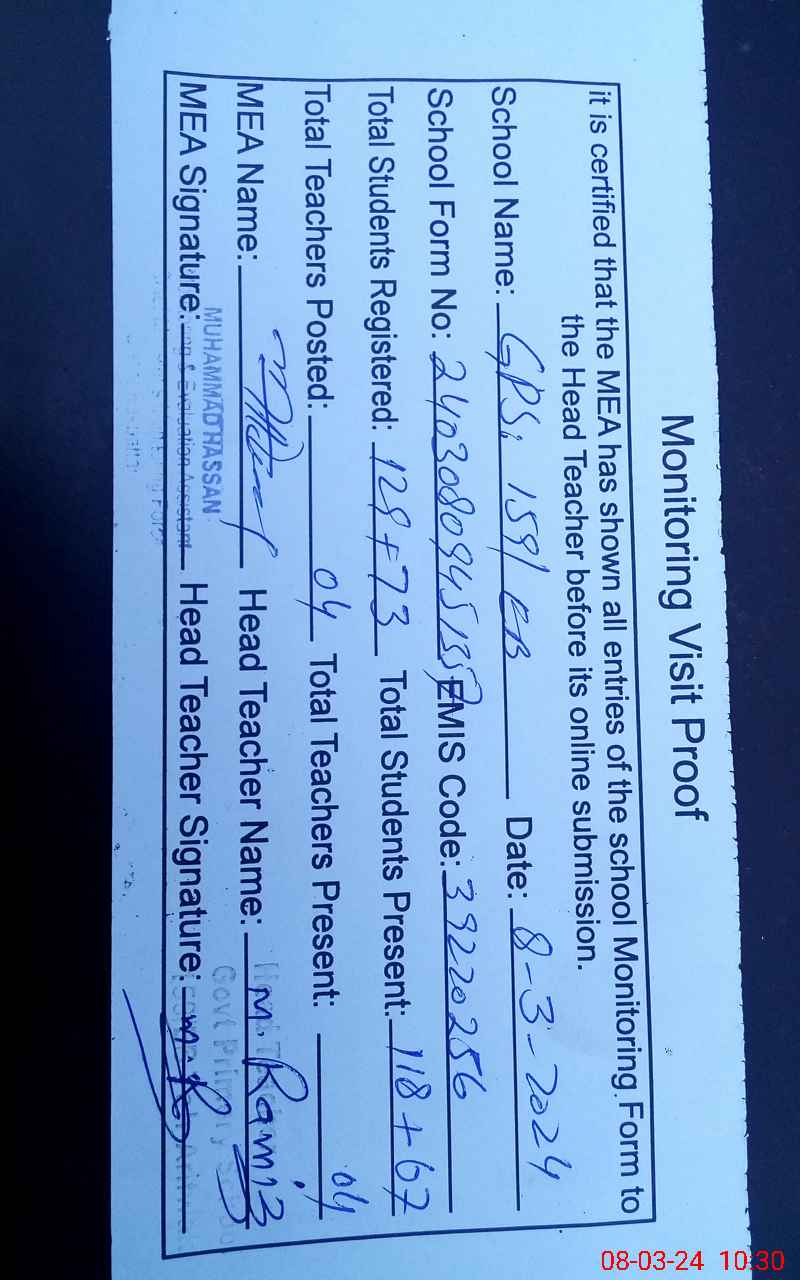 Monitoring Visit Proof
it is certified that the MEA has shown all entries of the school Monitoring Form to
the Head Teacher before its online submission.
School Name: GPS, 159/EB Date: 8-3-2024
School Form No: EMIS Code: 39220256
Total Students Registered: 128+73 Total Students Present: 118+67
Total Teachers Posted: 04 Total Teachers Present: 04
MEA Name: Head Teacher Name: M. Ramiz
MUHAMMAD HASSAN
MEA Signature: Head Teacher Signature:
& Evaluation Assistant
Govt Primary
08-03-24 10:30